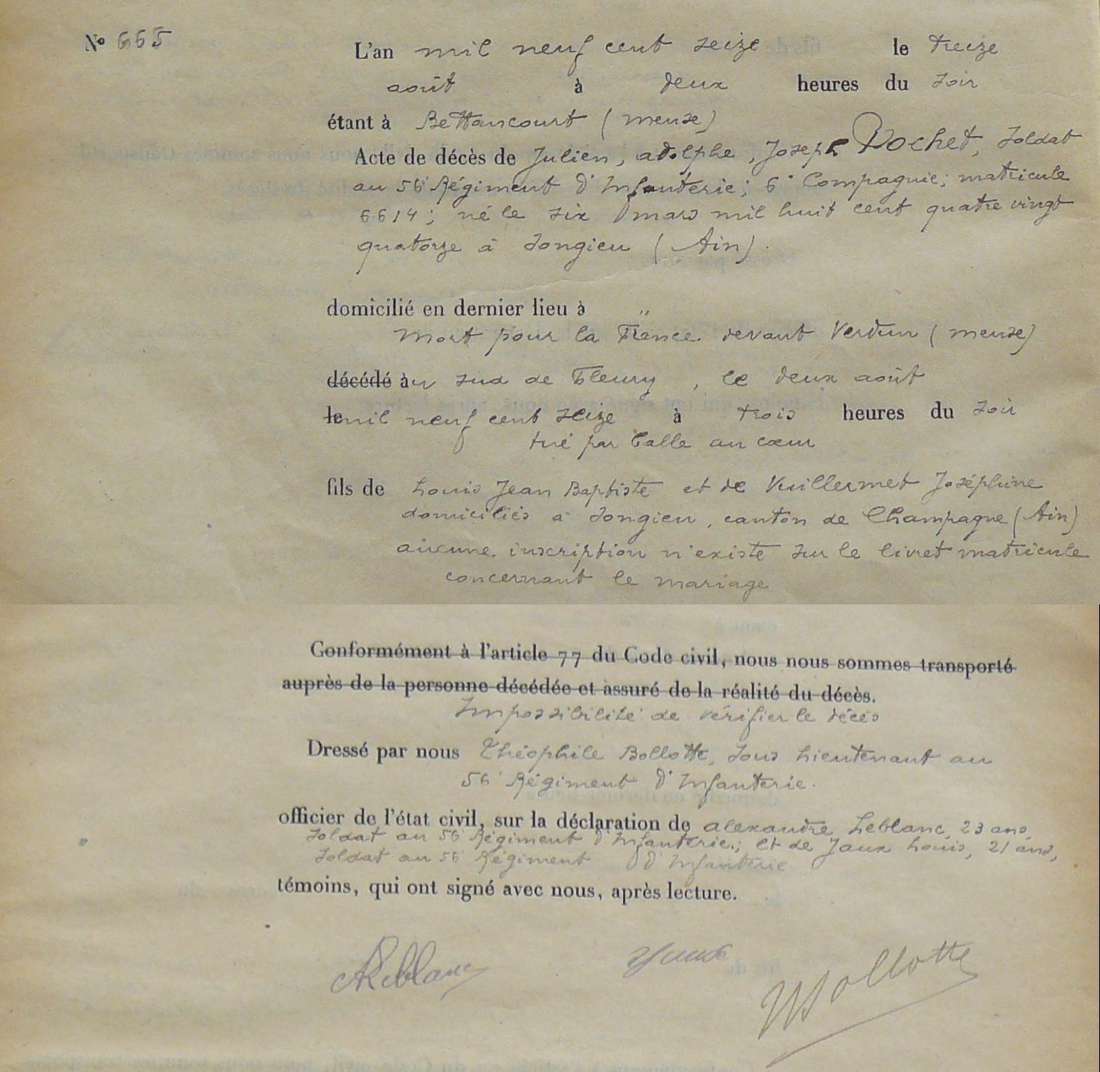 N° 665
L'an mil neuf cent seize le treize
août à deux heures du soir
étant à Bettancourt (meuse)
Acte de décès de Julien, adolphe, Joseph Rochet, soldat
au 56e Régiment d'Infanterie; 6e Compagnie; matricule
6614; né le six mars mil huit cent quatre vingt
quatorze à Songieu (Ain).
domicilié en dernier lieu à "
Mort pour la France devant Verdun (meuse)
décédé àu sud de Fleury, le deux août
le mil neuf cent seize à trois heures du soir
tué par balle au cœur
fils de Louis Jean Baptiste et de Vuillermet Joséphine
domiciliés à Songieu, canton de Champagne (Ain)
aucune inscription n'existe sur le livret matricule
concernant le mariage
Conformément à l'article 77 du Code civil, nous nous sommes transporté
auprès de la personne décédée et assuré de la réalité du décès.
Impossibilité de vérifier le décès
Dressé par nous Théophile Bollotte, sous lieutenant au
56e Régiment d'Infanterie.
officier de l'état civil, sur la déclaration de alexandre Leblanc, 23 ans,
soldat au 56e Régiment d'Infanterie; et de Jaux Louis, 21 ans,
soldat au 56e Régiment d'Infanterie
témoins, qui ont signé avec nous, après lecture.
ALeblanc Bollotte